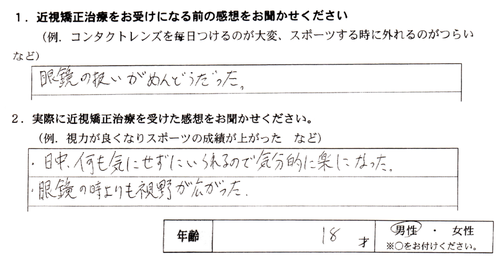 1．近視矯正治療をお受けになる前の感想をお聞かせください
（例．コンタクトレンズを毎日つけるのが大変、スポーツする時に外れるのがつらい
など）
眼鏡の扱いがめんどうだった。
2．実際に近視矯正治療を受けた感想をお聞かせください。
（例．視力が良くなりスポーツの成績が上がった　など）
・日中、何も気にせずにいられるので気分的に楽になった。
・眼鏡の時よりも視野が広がった.
年齢　18　才　男性　・　女性
※○をお付けください。